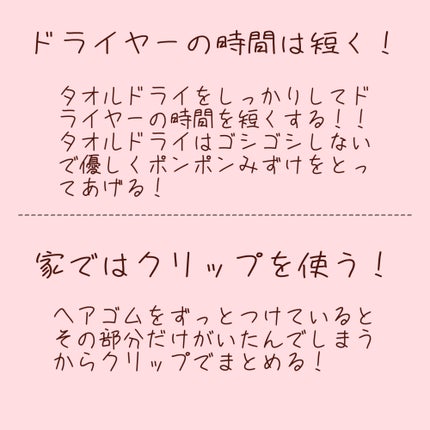 ドライヤーの時間は短く！
タオルドライをしっかりしてド
ライヤーの時間を短くする！！
タオルドライはゴシゴシしない
で優しくポンポンみずけをとっ
てあげる！
家ではクリップを使う！
ヘアゴムをずっとつけていると
その部分だけがいたんでしまう
からクリップでまとめる！